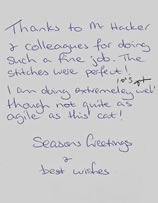 Thanks to Mr Hacker
& colleagues for doing
such a fine job. The
stitches were perfect!
I am doing extremely well
though not quite as
agile as this cat!
Seasons Greetings
&
best wishes